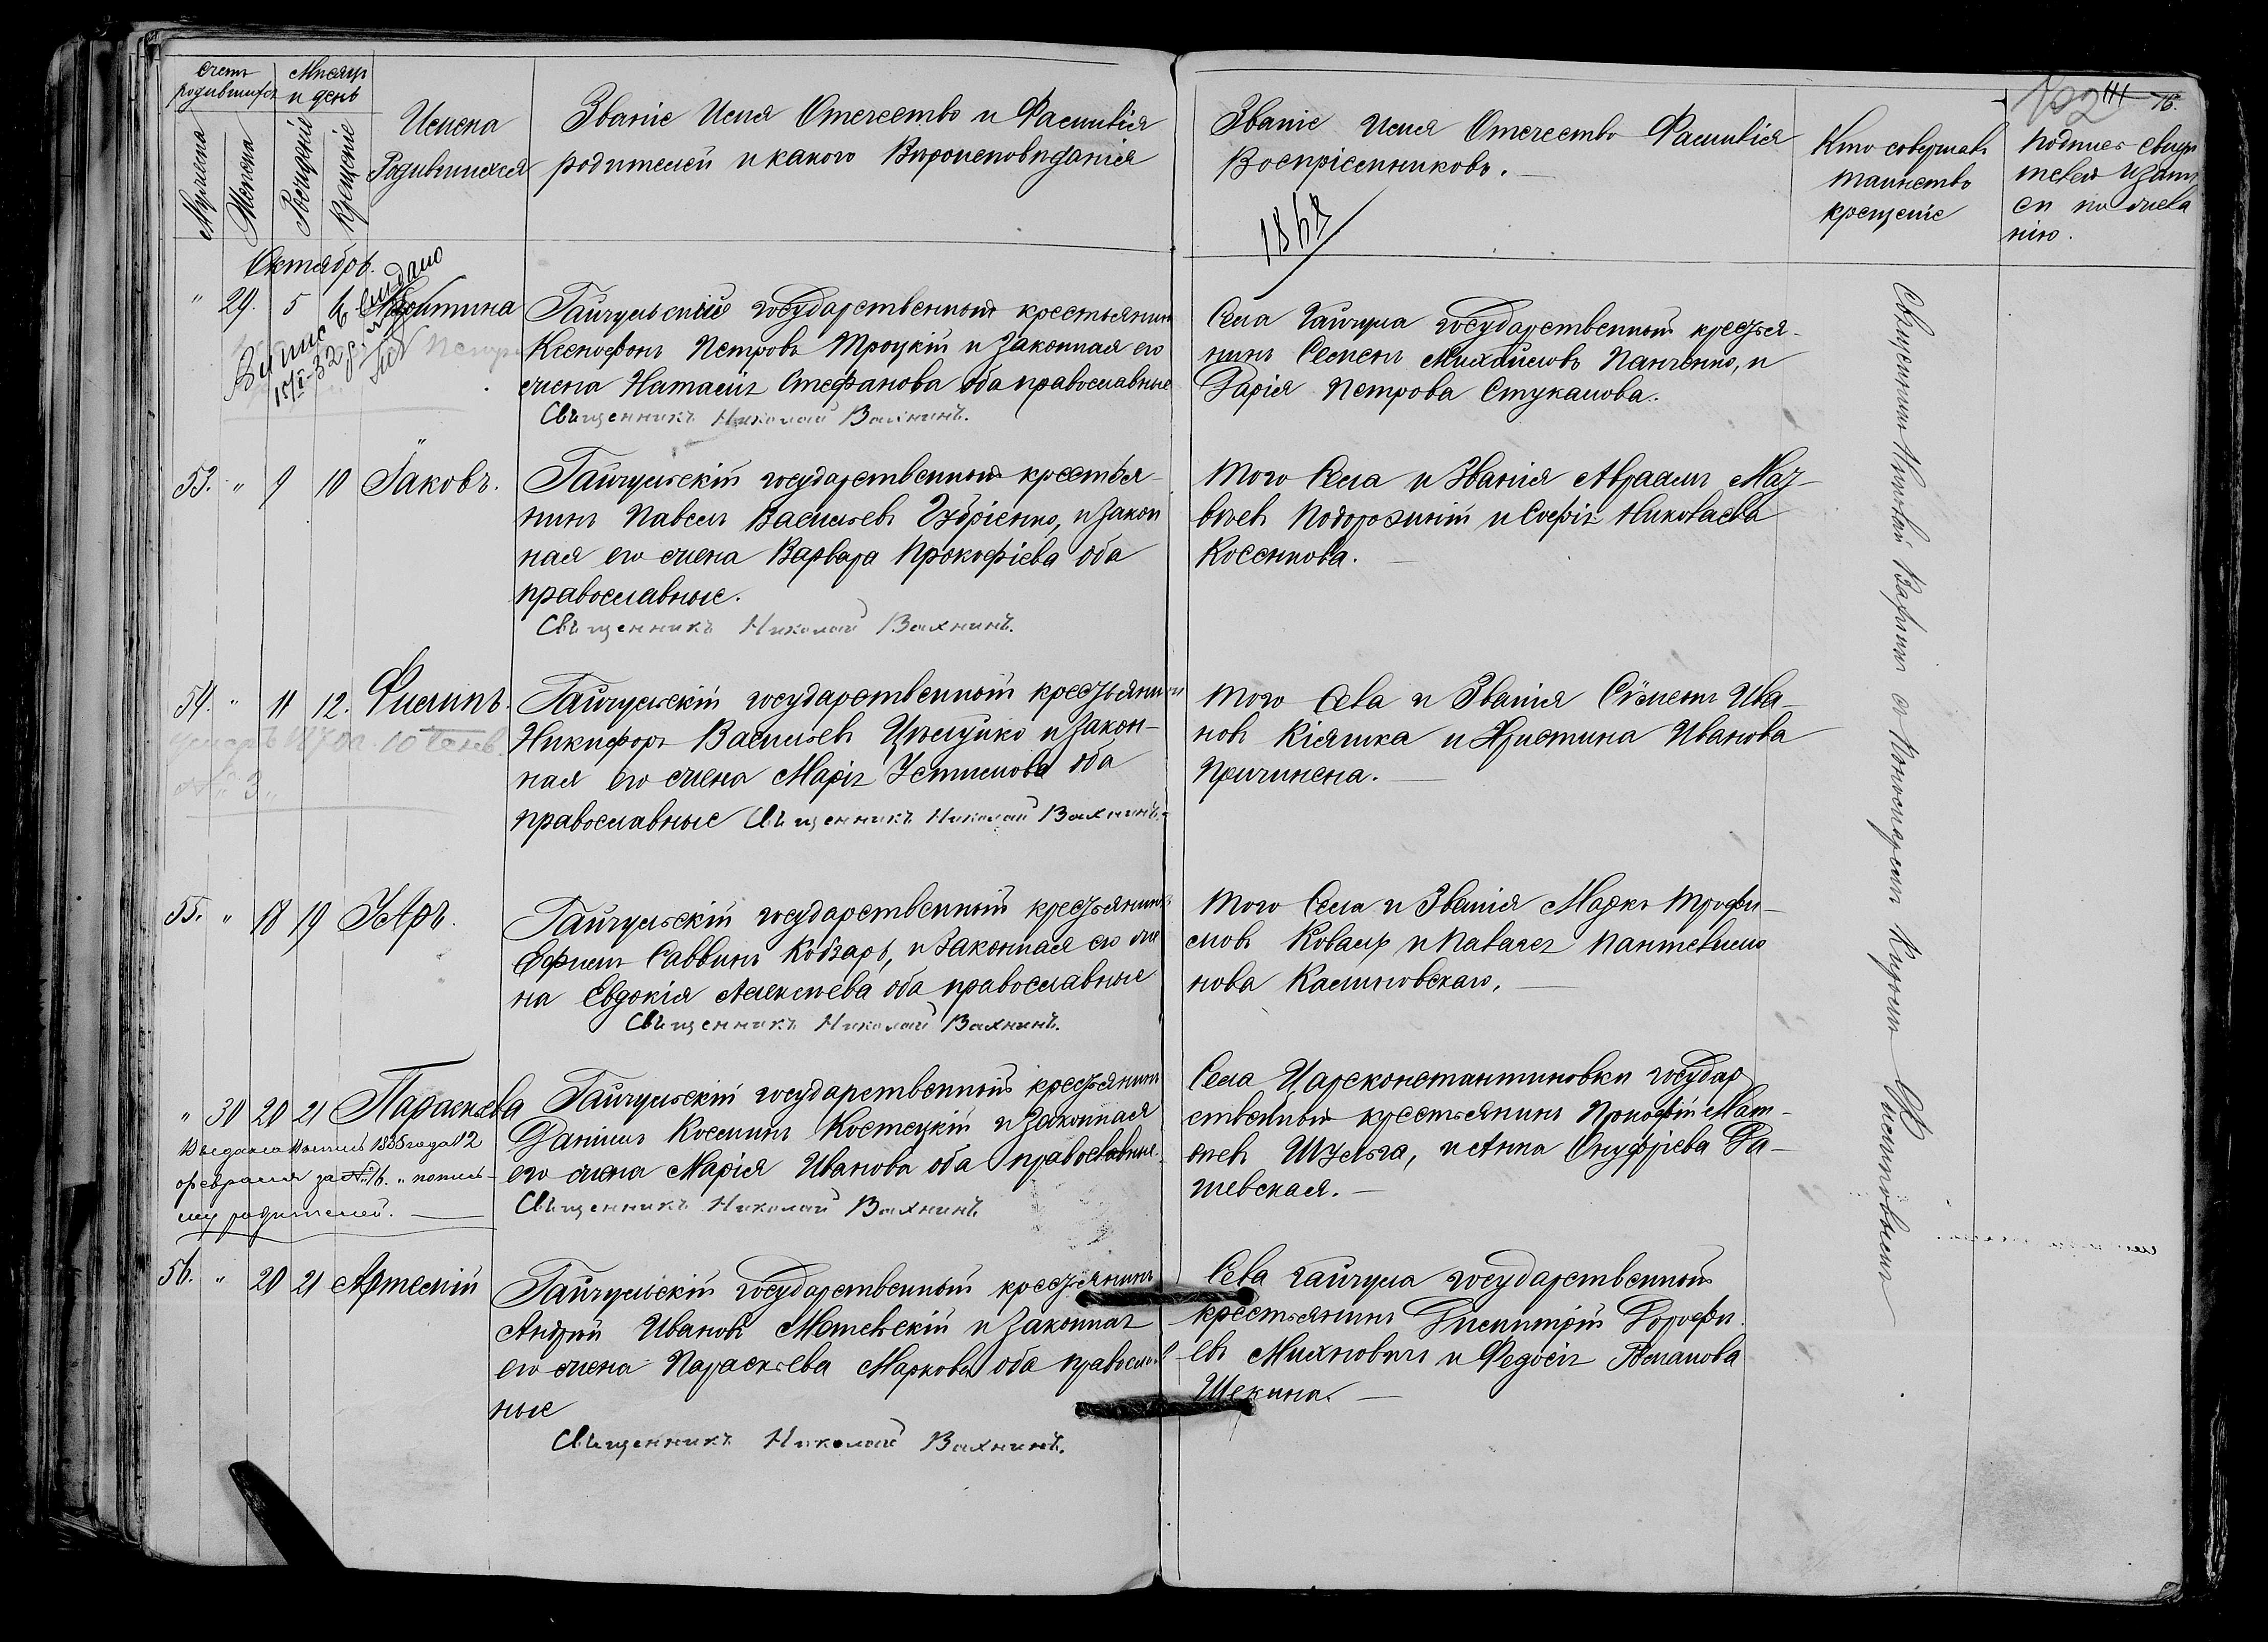 Счетъ родившихся
Мѣсяцъ и день
Мужеска
Женска
Рожденіе
Крещеніе
Имена
Родившихся
Званіе Имя Отчество и Фамилія
родителей и какого Вѣроисповѣданія
Званіе Имя Отчество Фамилія
Воспріемниковъ.
1868
Кто совершалъ
таинство
крещеніе
102
15.
Октябрь.
" 29. 5 6
Гайчульскій государственный крестьянинъ
Ксенофонъ Петровъ Троцкій и Законная его
жена Наталія Стефанова оба православные
Священникъ Николай Вахнинъ.
Села Гайчула государственный крестья-
нинъ Семенъ Михайловъ Панченко, и
Дарія Петрова Стукалова.
53. " 9 10 Іаковъ.
Гайчульскій государственный крестья-
нинъ Павелъ Васильевъ Гудріенко, и Закон
ная его жена Варвара Прокофіева оба
православные.
Священникъ Николай Вахнинъ.
Того Села и Званія Авраамъ Мат-
вѣевъ Подорожній и Софія Николаева
Косенкова.
54. " 11 12. Филипъ.
Гайчульскій государственный крестьянинъ
Никифоръ Васильевъ Цѣлуйко и Закон-
ная его жена Марія Устимова оба
православные Священникъ Николай Вахнинъ.
№ 3
Того Села и Званія Сѵмеонъ Ива-
новъ Кіяшка и Христина Иванова
55. " 18 19 Уаръ.
Гайчульскій государственный крестьянинъ
Ефимъ Саввинъ Кобзарь, и Законная его же
на Евдокія Алексѣева оба православные
Священникъ Николай Вахнинъ.
Того Села и Званія Марко Трофи-
мовъ Коваль и Пелагея Пантелеймо
нова Калиновскаго.
" 30 20 21 Параскѣева
Гайчульскій государственный крестьянинъ
Даніилъ Косминъ Костецкій и Законная
его жена Марія Иванова оба православные.
Священникъ Николай Вахнинъ.
февраля за № 16. " по пись-
му родителей.
Села Царсконстантиновки государ
ственный крестьянинъ Прокофій Мат-
вѣевъ Шульга, и Анна Онуфріева Ра-
шевская.
56. " 20 21 Артемій
Гайчульскій государственный крестьянинъ
Андрей Ивановъ Матевскій и Законная
его жена Параскѣева Маркова оба правосла
ные
Священникъ Николай Вахнинъ.
Села Гайчула государственный
крестьянинъ Димитрій Дорофе
евъ Михновичъ и Федосія Романова
Щекина.